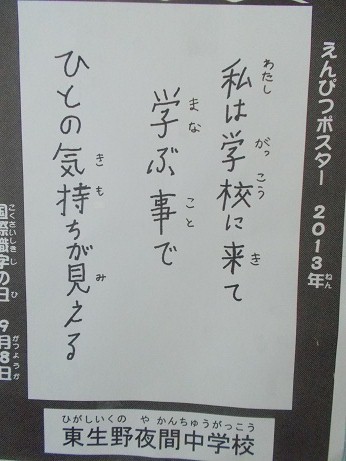 えんぴつポスター 2013年
私は学校に来て
学ぶ事で
ひとの気持ちが見える
国際識字の日 9月8日
東生野夜間中学校